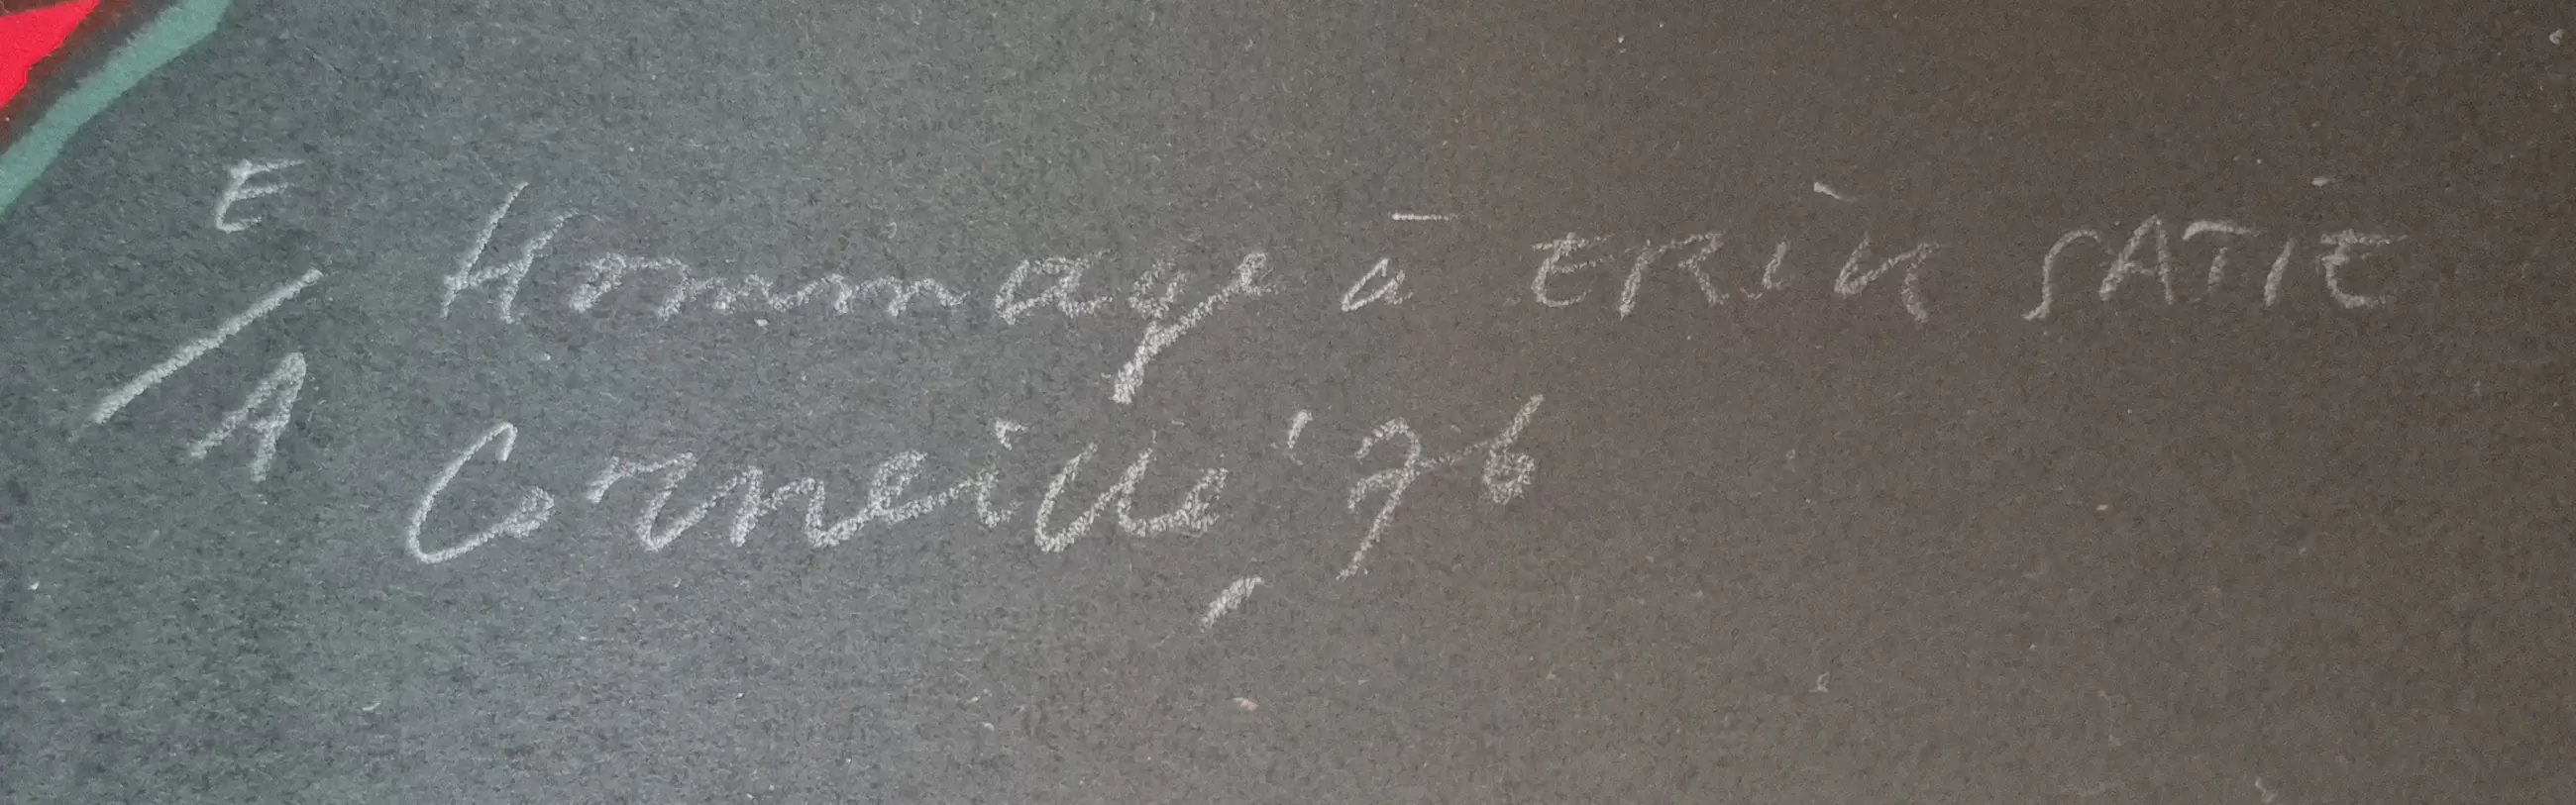 E/A
Hommage à ERiK SATIE
Corneille '76